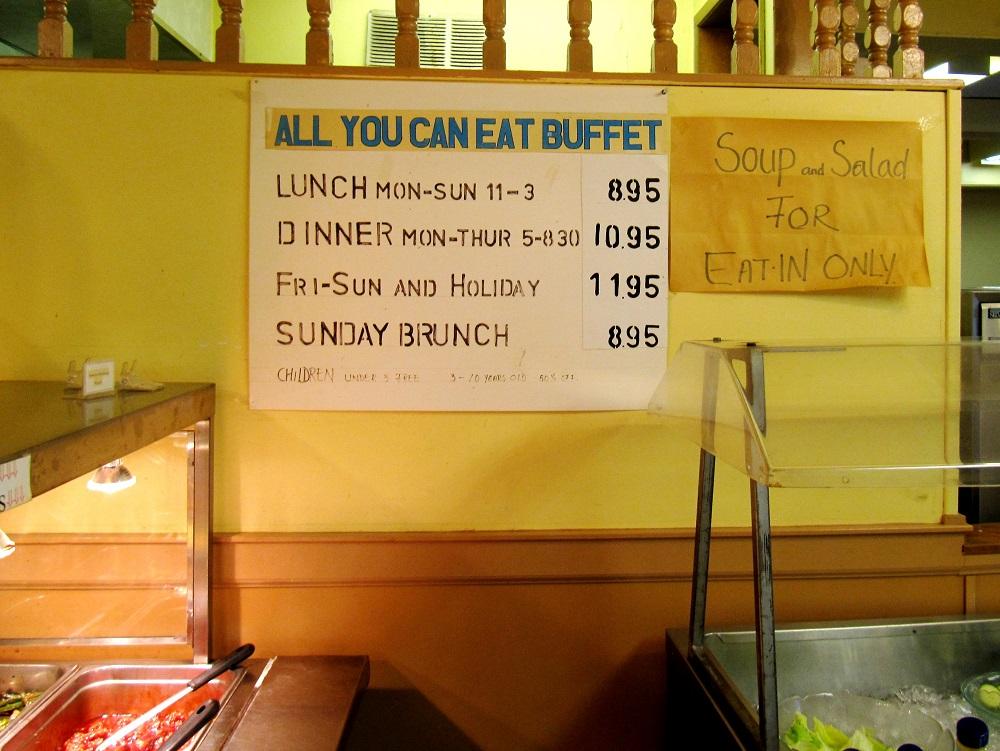 ALL YOU CAN EAT BUFFET
LUNCH MON-SUN 11-3 8.95
DINNER MON-THUR 5-830 10.95
FRI-SUN AND HOLIDAY 11.95
SUNDAY BRUNCH 8.95
CHILDREN UNDER 3 FREE 3-10 YEARS OLD 50% OFF
Soup and Salad
FOR
EAT-IN ONLY.